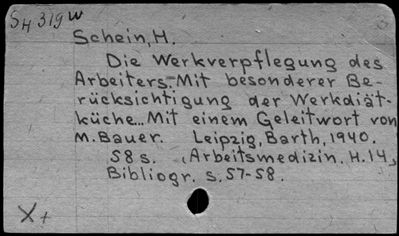 SH 319w
Schein, H.
Die Werkverpflegung des
Arbeiters.-Mit besonderer Be-
rücksichtigung der Werkdiät-
küche... Mit einem Geleitwort von
M. Bauer. Leipzig, Barth, 1940.
58 s. (Arbeitsmedizin. H. 14)
Bibliogr. s. 57-58.
X+